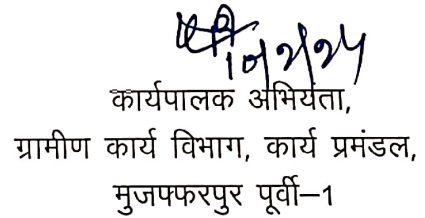 10/2/25
कार्यपालक अभियंता,
ग्रामीण कार्य विभाग, कार्य प्रमंडल,
मुजफ्फरपुर पूर्वी–1